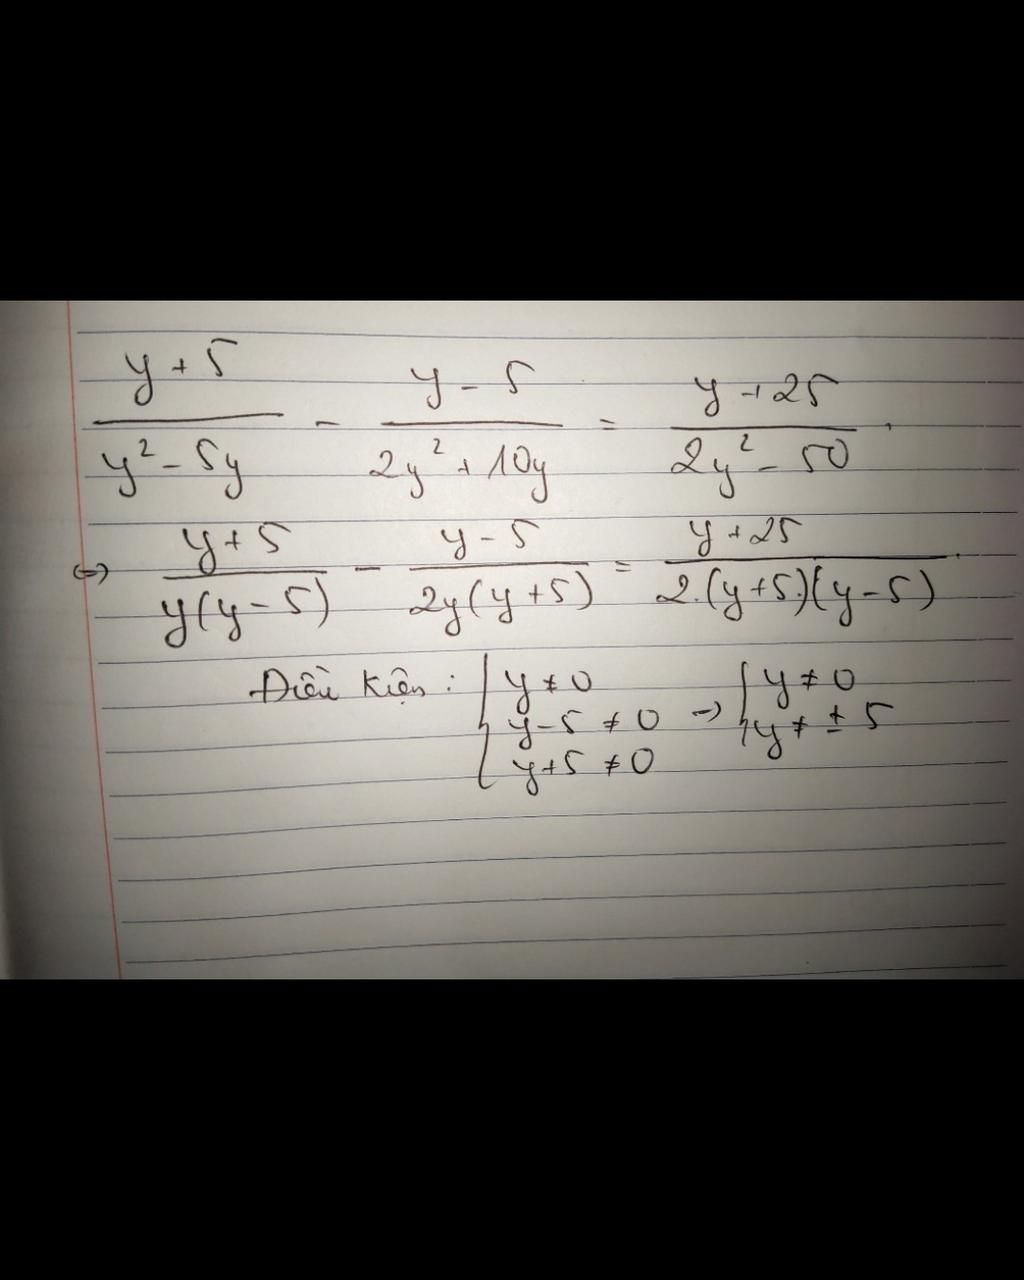 (y + 5)/(y² - 5y) - (y - 5)/(2y² + 10y) = (y + 25)/(2y² - 50).
<=> (y + 5)/(y(y - 5)) - (y - 5)/(2y(y + 5)) = (y + 25)/(2.(y + 5)(y - 5)).
Điều kiện : { y ≠ 0
y - 5 ≠ 0 → { y ≠ 0
y + 5 ≠ 0 y ≠ ± 5